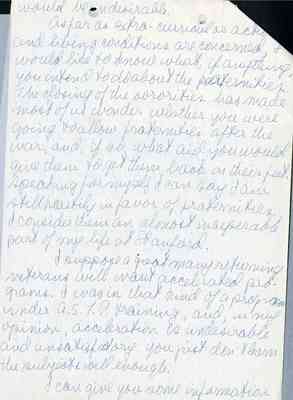 would be undesirable.
As far as extra-curricular acti
and living conditions are concerned, I
would like to know what, if anything,
you intend to do about the fraternities.
The closing of the sororities has made
most of us wonder whether you were
going to allow fraternities after the
war, and, if so, what aid you would
give them to get them back on their feet.
Speaking for myself I can say I am
still heartily in favor of fraternities.
I consider them an almost inseparable
part of my life at Stanford.
I suppose a great many returning
veterans will want accelerated pro-
grams. I was in that kind of a program
under A.S.T.P. training, and, in my
opinion, acceleration is undesirable
and unsatisfactory. You just don't learn
the subjects well enough.
I can give you some information